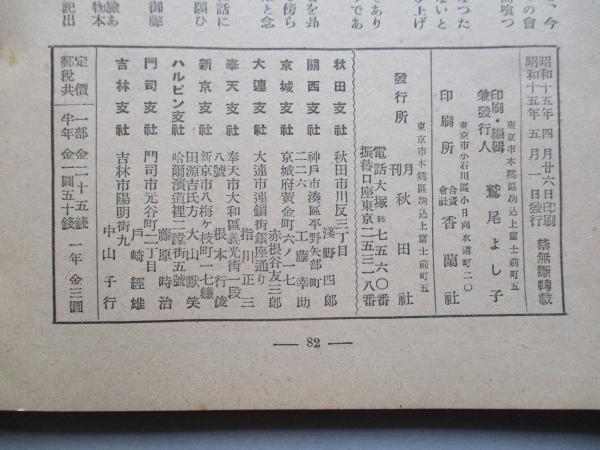 、今
の會
喰つ
なつた
ないと
上げ
であり
を昂
傍ら
と念
話に
願ひ
御藤
驗あ
物本
記出
昭和十五年 四月廿六日印刷
昭和十五年 五月一日發行
禁無斷轉載
東京市本鄕區駒込上富士前町五
印刷・編輯
兼發行人 鷲尾よし子
東京市小石川區小日向水道町二〇
印刷所 合資會社 香蘭社
東京市本鄕區駒込上富士前町五
發行所 月刊秋田社
電話大塚七五六〇番
振替口座東京二五三一八番
秋田支社 秋田市川反三丁目
淺野四郎
關西支社 神戸市湊區平野矢部町
二二六 工藤幸助
京城支社 京城府黄金町六ノ一七
赤根谷友三郎
大連支社 大連市連鎖街銀座通り
指川正三
奉天支社 奉天市大和區義光街一段
八號 根本行俊
新京支社 新京市八梅ヶ枝町一七鎌
田源吉氏方 大山默笑
ハルビン支社 哈爾濱道裡二躄街五號
藤原時治
門司支社 門司市元谷町二丁目
戸崎經雄
吉林支社 吉林市陽明街九
中山子行
定價 一部 金二十五錢 一年 金三圓
郵税共 半年 金一圓五十錢
— 82 —